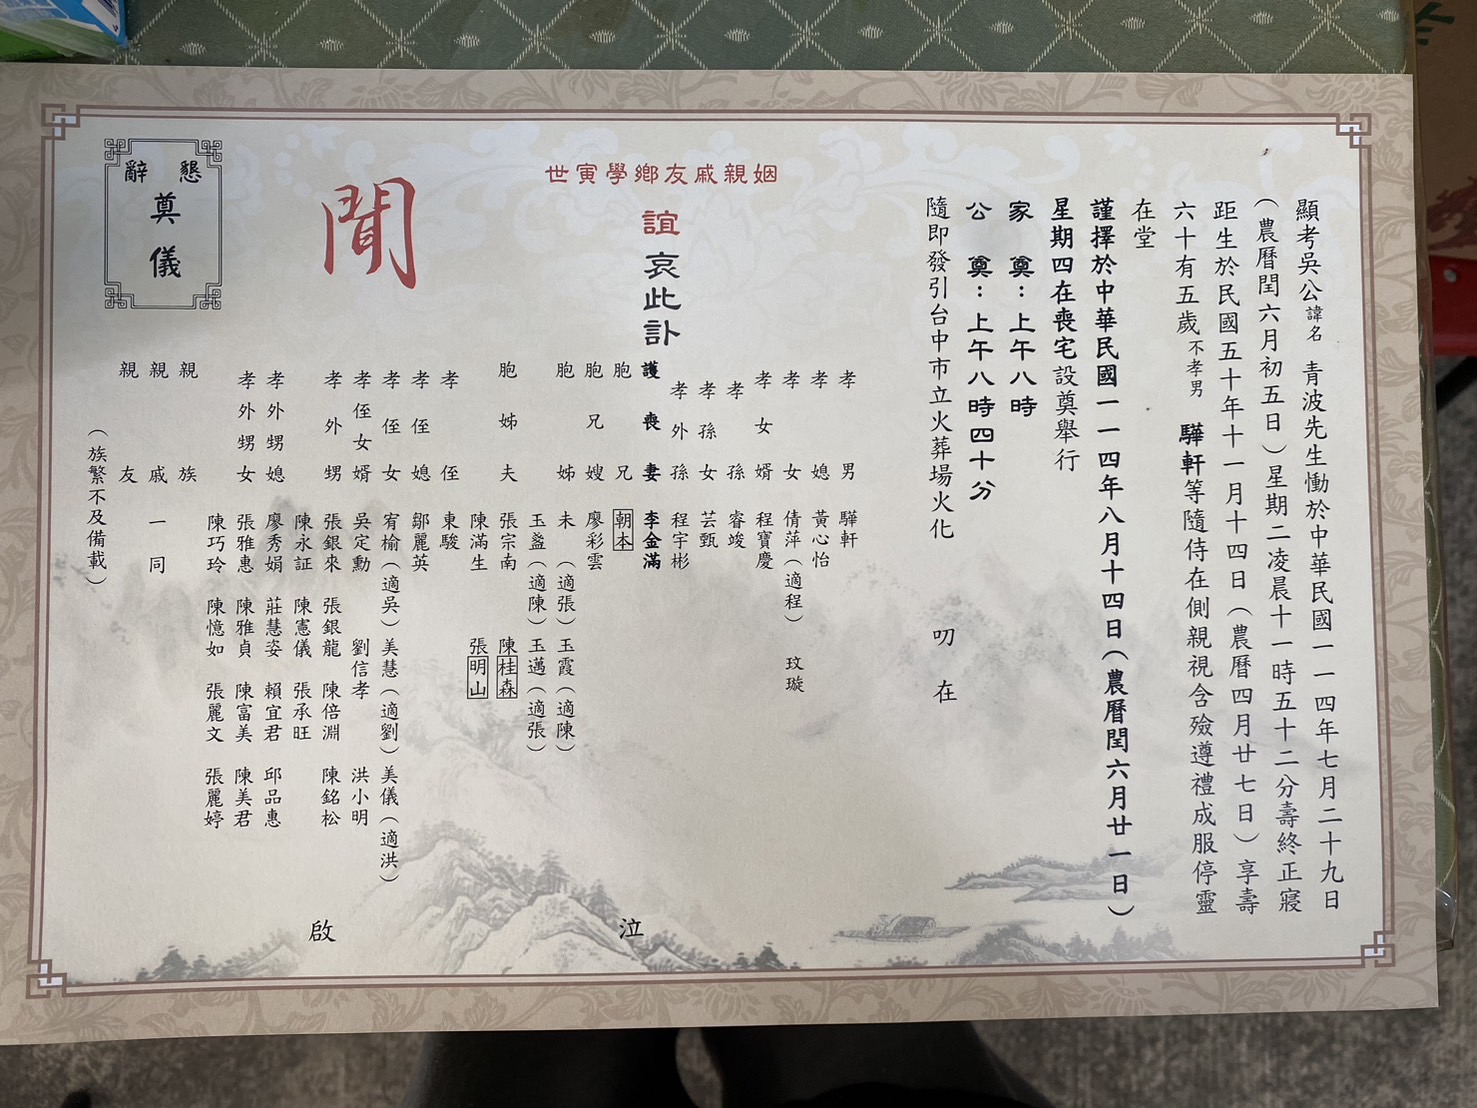 顯考吳公諱名 青波先生慟於中華民國一一四年七月二十九日
（農曆閏六月初五日）星期二凌晨十一時五十二分壽終正寢
距生於民國五十年十一月十四日（農曆四月廿七日）享壽
六十有五歲不孝男 驊軒等隨侍在側親視含殮遵禮成服停靈
在堂
謹擇於中華民國一一四年八月十四日（農曆閏六月廿一日）
星期四在喪宅設奠舉行
家 奠：上午八時
公 奠：上午八時四十分
隨即發引台中市立火葬場火化
叨 在
姻親戚友鄉學寅世
誼 哀此訃
聞
孝男 驊軒
孝媳 黃心怡
孝女 倩萍（適程） 玟璇
孝女婿 程寶慶
孝孫 睿竣
孝孫女 芸甄
孝外孫 程宇彬
護喪妻 李金滿
胞兄 朝本
胞兄嫂 廖彩雲
胞姊 未（適張） 玉霞（適陳）
玉盞（適陳） 玉邁（適張）
胞姊夫 張宗南 陳桂森
陳滿生 張明山
孝侄 東駿
孝侄媳 鄒麗英
孝侄女 宥榆（適吳） 美慧（適劉） 美儀（適洪）
孝侄女婿 吳定勳 劉信孝 洪小明
孝外甥 張銀來 張銀龍 陳倍淵 陳銘松
陳永証 陳憲儀 張承旺
孝外甥媳 廖秀娟 莊慧姿 賴宜君 邱品惠
孝外甥女 張雅惠 陳雅貞 陳富美 陳美君
陳巧玲 陳憶如 張麗文 張麗婷
親族
親戚 一同
親友
（族繁不及備載）
泣
啟
懇辭
奠儀